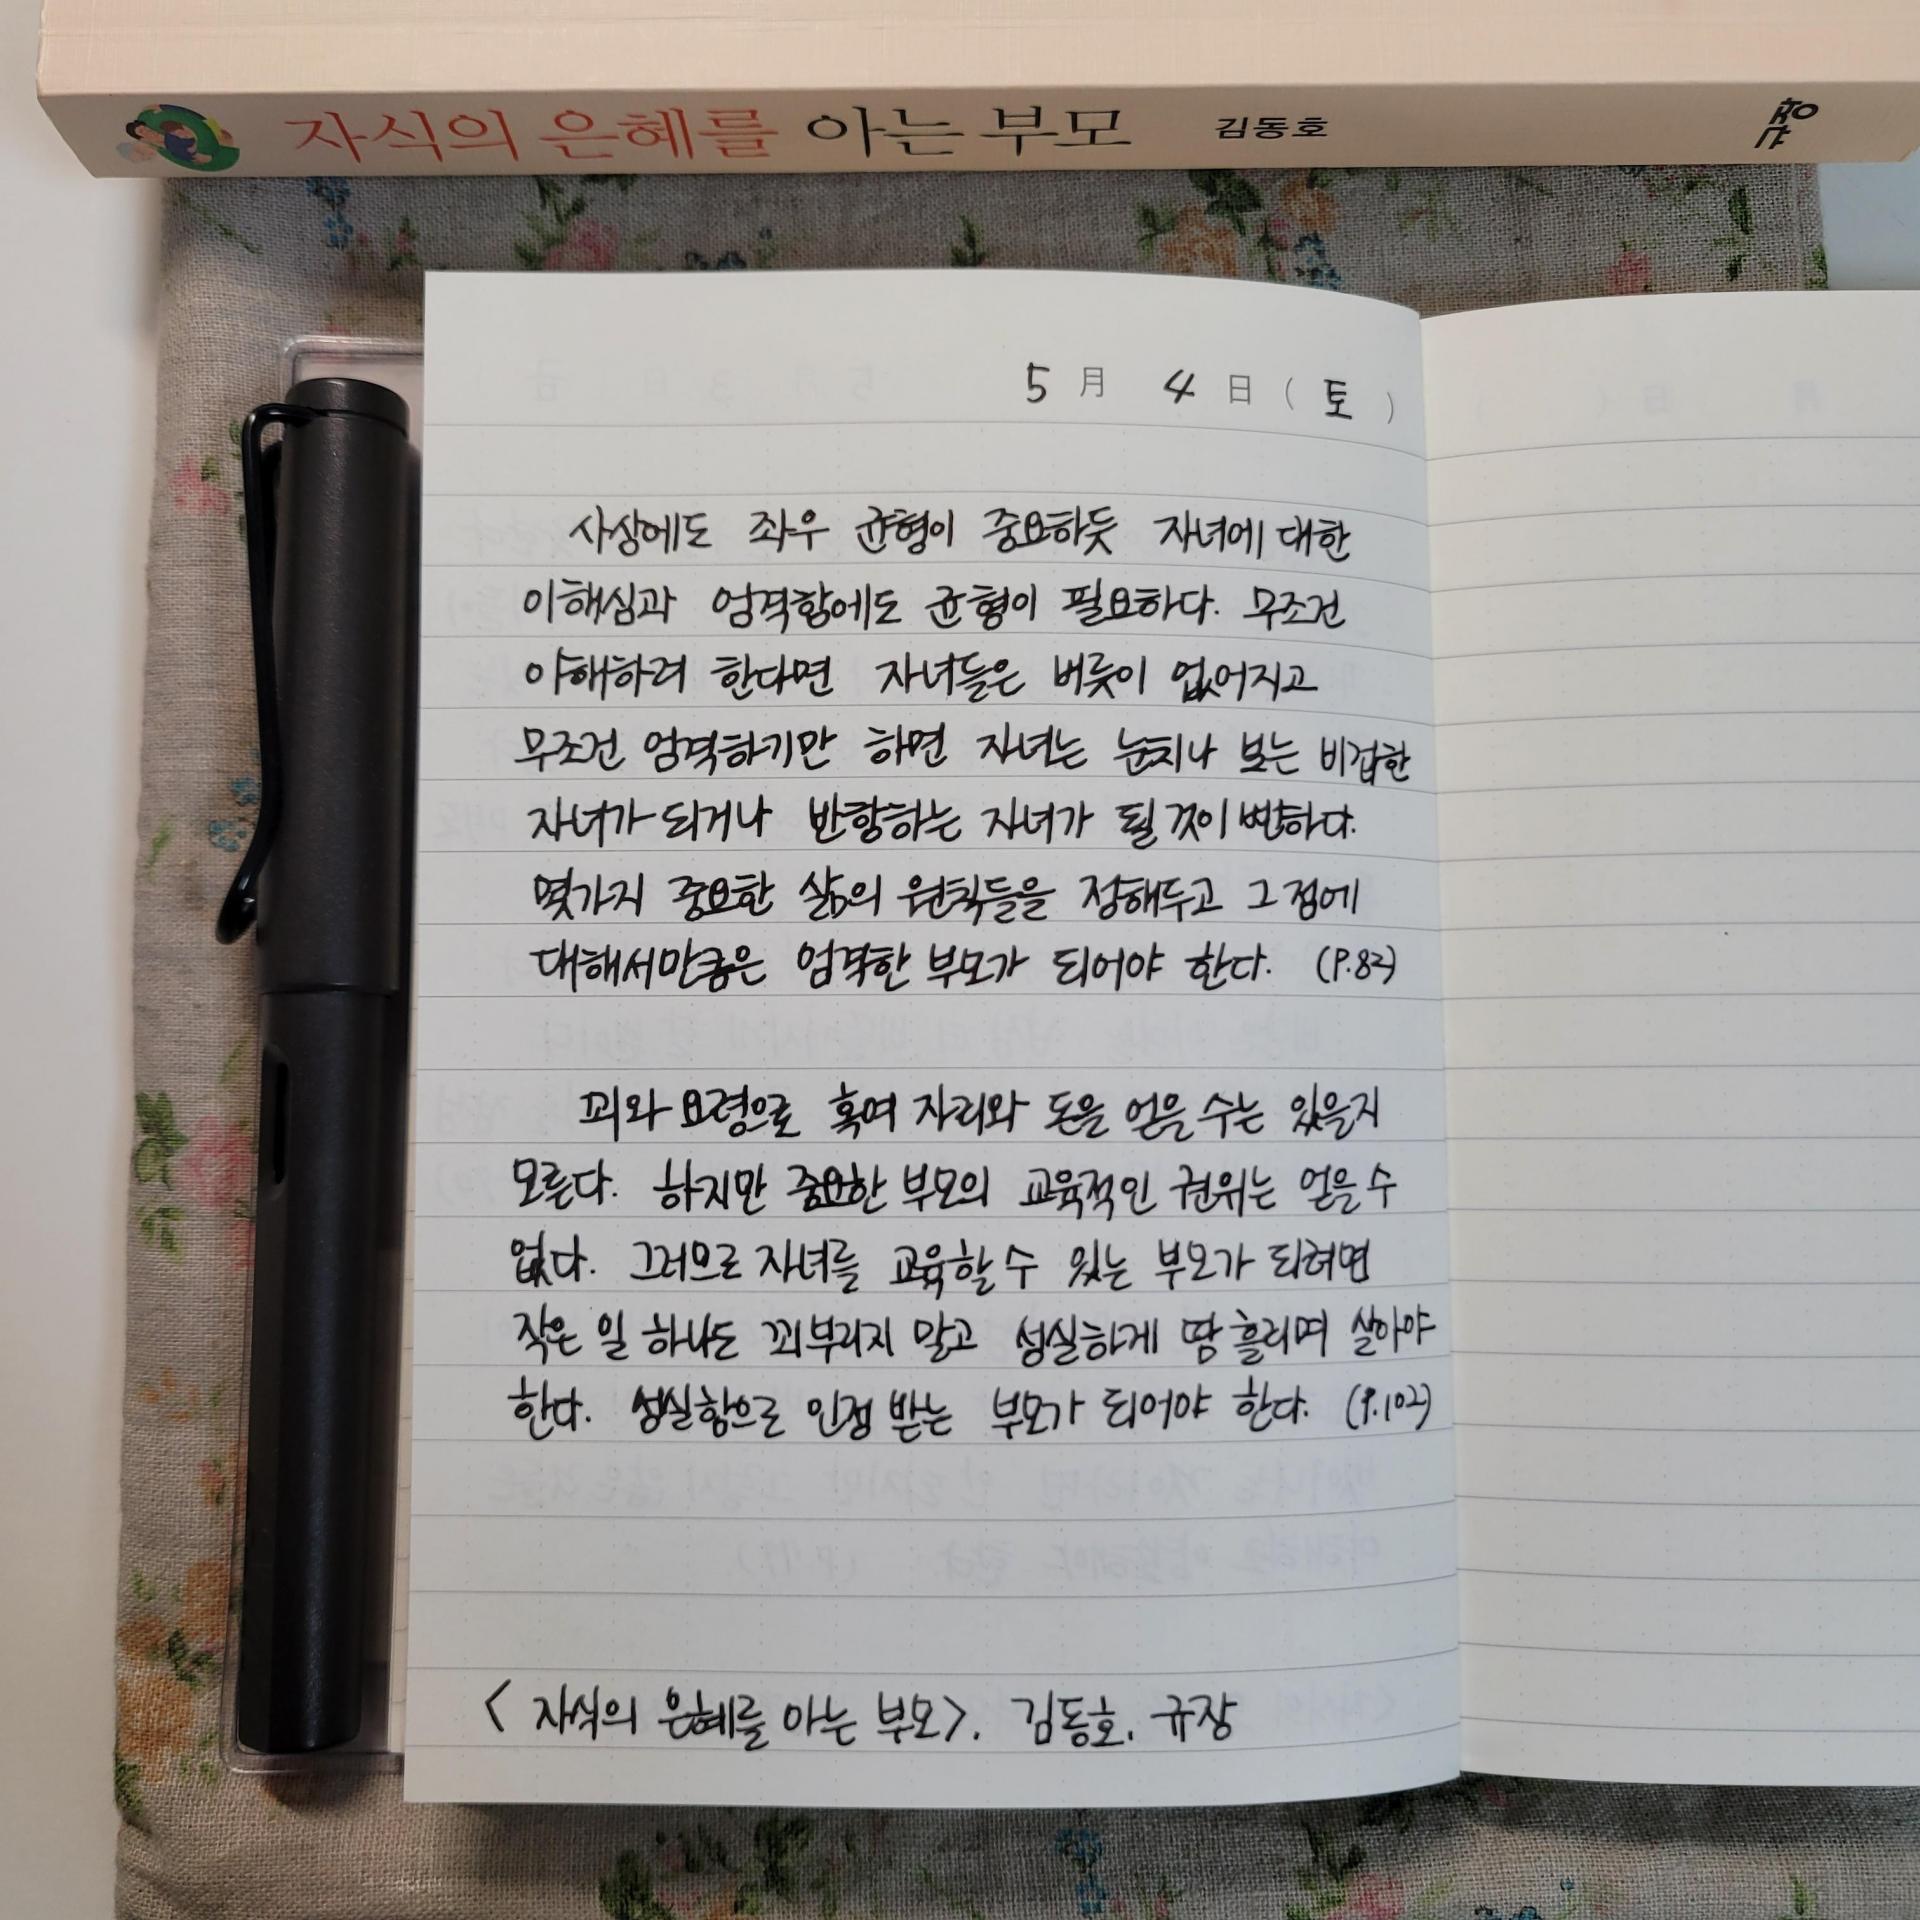 자식의 은혜를 아는 부모 김동호 규장
5 月 4 日 ( 토 )
사상에도 좌우 균형이 중요하듯 자녀에 대한
이해심과 엄격함에도 균형이 필요하다. 무조건
이해하려 한다면 자녀들은 버릇이 없어지고
무조건 엄격하기만 하면 자녀는 눈치나 보는 비겁한
자녀가 되거나 반항하는 자녀가 될 것이 뻔하다.
몇가지 중요한 삶의 원칙들을 정해두고 그 점에
대해서만큼은 엄격한 부모가 되어야 한다. (P.82)
꾀와 요령으로 혹여 자리와 돈을 얻을 수는 있을지
모른다. 하지만 중요한 부모의 교육적인 권위는 얻을 수
없다. 그러므로 자녀를 교육할 수 있는 부모가 되려면
작은 일 하나도 꾀부리지 말고 성실하게 땀 흘리며 살아야
한다. 성실함으로 인정 받는 부모가 되어야 한다. (P.102)
< 자식의 은혜를 아는 부모>. 김동호. 규장